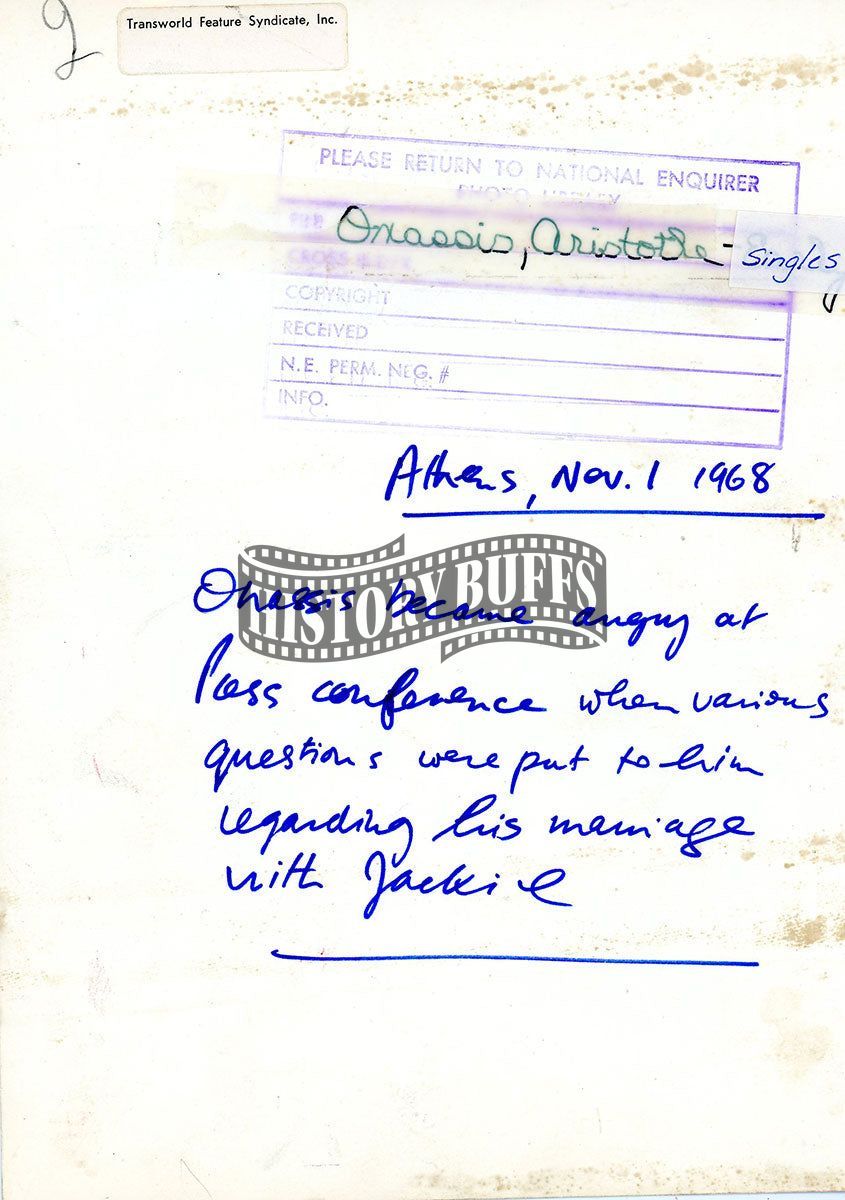 g
Transworld Feature Syndicate, Inc.
PLEASE RETURN TO NATIONAL ENQUIRER
PHOTO LIBRARY
Onassis, Aristotle - Singles
COPYRIGHT
RECEIVED
N.E. PERM. NEG. #
INFO.
Athens, Nov. 1 1968
HISTORY BUFFS
Onassis became angry at
Press conference when various
questions were put to him
regarding his marriage
with Jackie